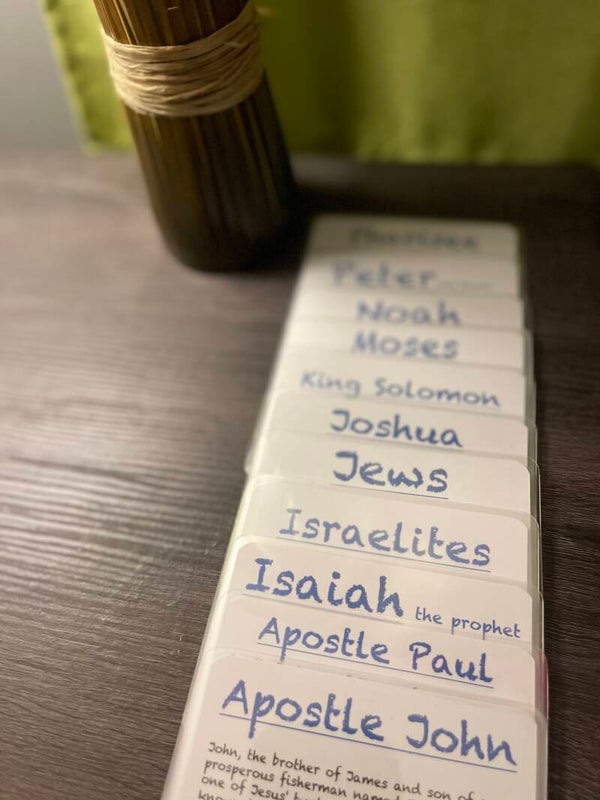 Peter
Noah
Moses
King Solomon
Joshua
Jews
Israelites
Isaiah the prophet
Apostle Paul
Apostle John
John, the brother of James and son of
prosperous fisherman
one of Jesus'